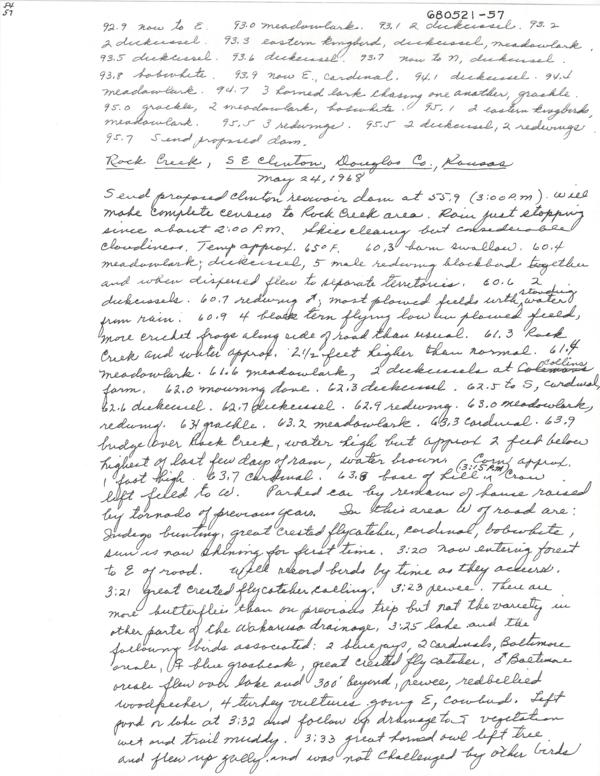 54
57
680521-57
92.9 now to E. 93.0 meadowlark. 93.1 2 dickcissel. 93.2
2 dickcissel. 93.3 eastern kingbird, dickcissel, meadowlark.
93.5 dickcissel. 93.6 dickcissel. 93.7 now to N, dickcissel.
93.8 bobwhite. 93.9 now E., cardinal. 94.1 dickcissel. 94.4
meadowlark. 94.7 3 horned lark chasing one another, grackle.
95.0 grackle, 2 meadowlark, bobwhite. 95.1 2 eastern kingbirds,
meadowlark. 95.5 3 redwings. 95.5 2 dickcissel, 2 redwings.
95.7 S end proposed dam.
Rock Creek, SE Clinton, Douglas Co., Kansas
May 24, 1968
S end proposed Clinton reservoir dam at 55.9 (3:00 P.M.) Will
make complete census to Rock Creek area. Rain just stopping
since about 2:00 P.M. Skies clearing but considerable
cloudiness. Temp approx. 65°F. 60.3 barn swallow. 60.4
meadowlark; dickcissel, 5 male redwing blackbird together
and when dispersed flew to separate territories. 60.6 2
dickcissels. 60.7 redwing ♂; most plowed fields with standing water
from rain. 60.9 4 black tern flying low in plowed field,
more cricket frogs along side of road than usual. 61.3 Rock
Creek and water approx. 2 1/2 feet higher than normal. 61.4
meadowlark. 61.6 meadowlark, 2 dickcissels at Collins
farm. 62.0 mourning dove. 62.3 dickcissel. 62.5 to S, cardinal,
62.6 dickcissel. 62.7 dickcissel. 62.9 redwing. 63.0 meadowlark,
redwing. 63.1 grackle. 63.2 meadowlark. 63.3 cardinal. 63.9
bridge over Rock Creek, water high but approx 2 feet below
highest of last few days of rain, water brown. Corn approx.
1 foot high. 63.7 cardinal. 63.8 base of hill (3:15 P.M.) Crow
left field to W. Parked car by remains of house raised
by tornado of previous years. In this area W of road are:
Indigo bunting, great crested flycatcher, cardinal, bobwhite,
sun is now shining for first time. 3:20 now entering forest
to E of road. Will record birds by time as they occurs.
3:21 great crested flycatcher calling. 3:23 pewee. There are
more butterflies than on previous trip but not the variety in
other parts of the Wakarusa drainage. 3:25 lake and the
following birds associated: 2 blue jays, 2 cardinals, Baltimore
oriole, ♀ blue grosbeak, great crested flycatcher, ♂ Baltimore
oriole flew over lake and 300' beyond, pewee, redbellied
woodpecker, 4 turkey vultures going E, cowbird. Left
pond or lake at 3:32 and follow up drainage to S vegetation
wet and trail muddy. 3:33 great horned owl left tree
and flew up gully and was not challenged by other birds